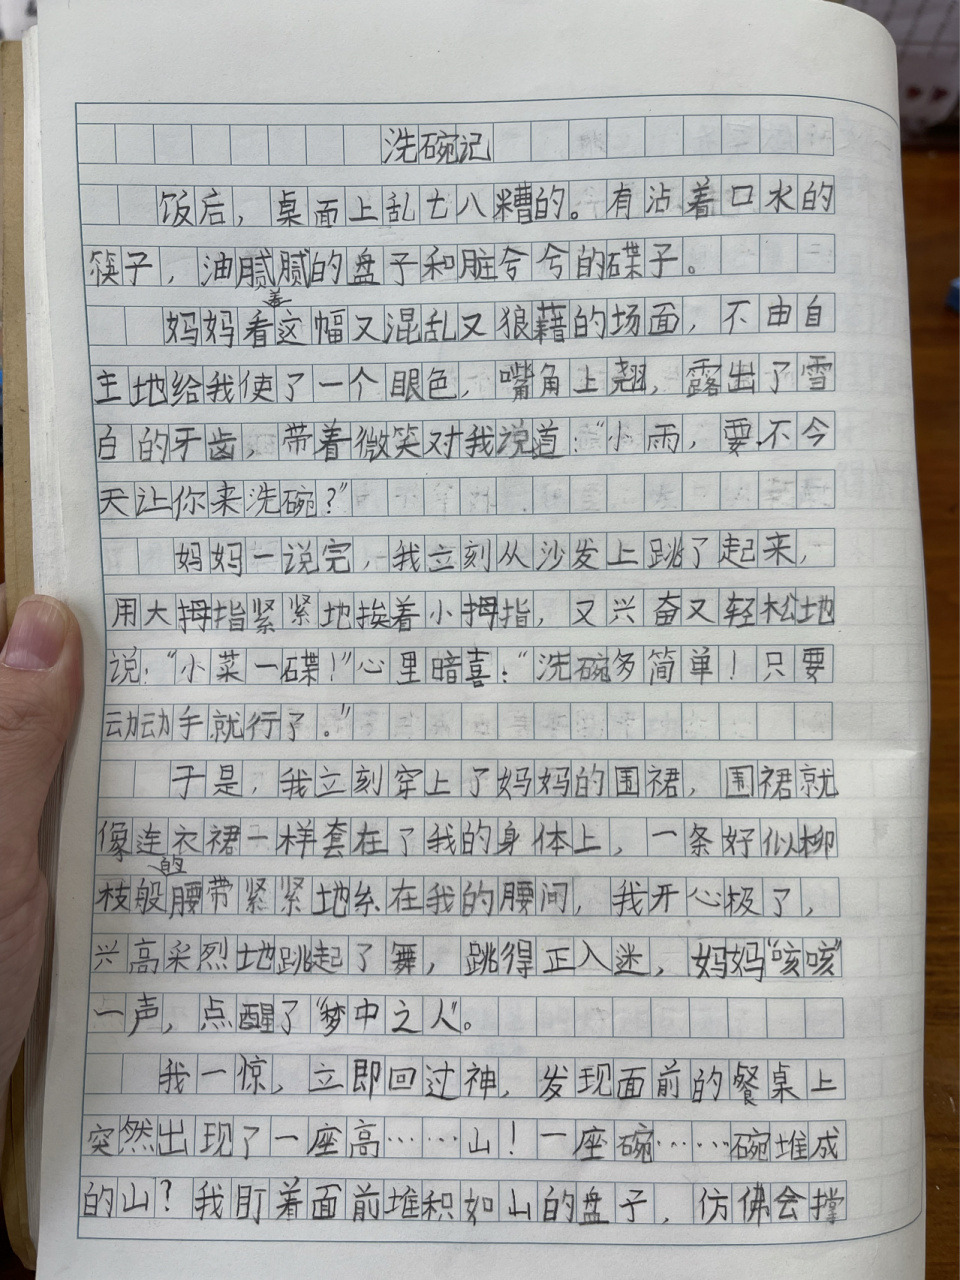 洗碗记
饭后，桌面上乱七八糟的。有沾着口水的
筷子，油腻腻的盘子和脏兮兮的碟子。
妈妈看着这幅又混乱又狼藉的场面，不由自
主地给我使了一个眼色，嘴角上翘，露出了雪
白的牙齿，带着微笑对我说道：“小雨，要不今
天让你来洗碗？”
妈妈一说完，我立刻从沙发上跳了起来，
用大拇指紧紧地挨着小拇指，又兴奋又轻松地
说：“小菜一碟！”心里暗喜：“洗碗多简单！只要
动动手就行了。”
于是，我立刻穿上了妈妈的围裙，围裙就
像连衣裙一样套在了我的身体上，一条好似柳
枝般的腰带紧紧地系在我的腰间，我开心极了，
兴高采烈地跳起了舞，跳得正入迷，妈妈“咳咳”
一声，点醒了“梦中之人”。
我一惊，立即回过神，发现面前的餐桌上
突然出现了一座高……山！一座碗……碗堆成
的山？我盯着面前堆积如山的盘子，仿佛会撑